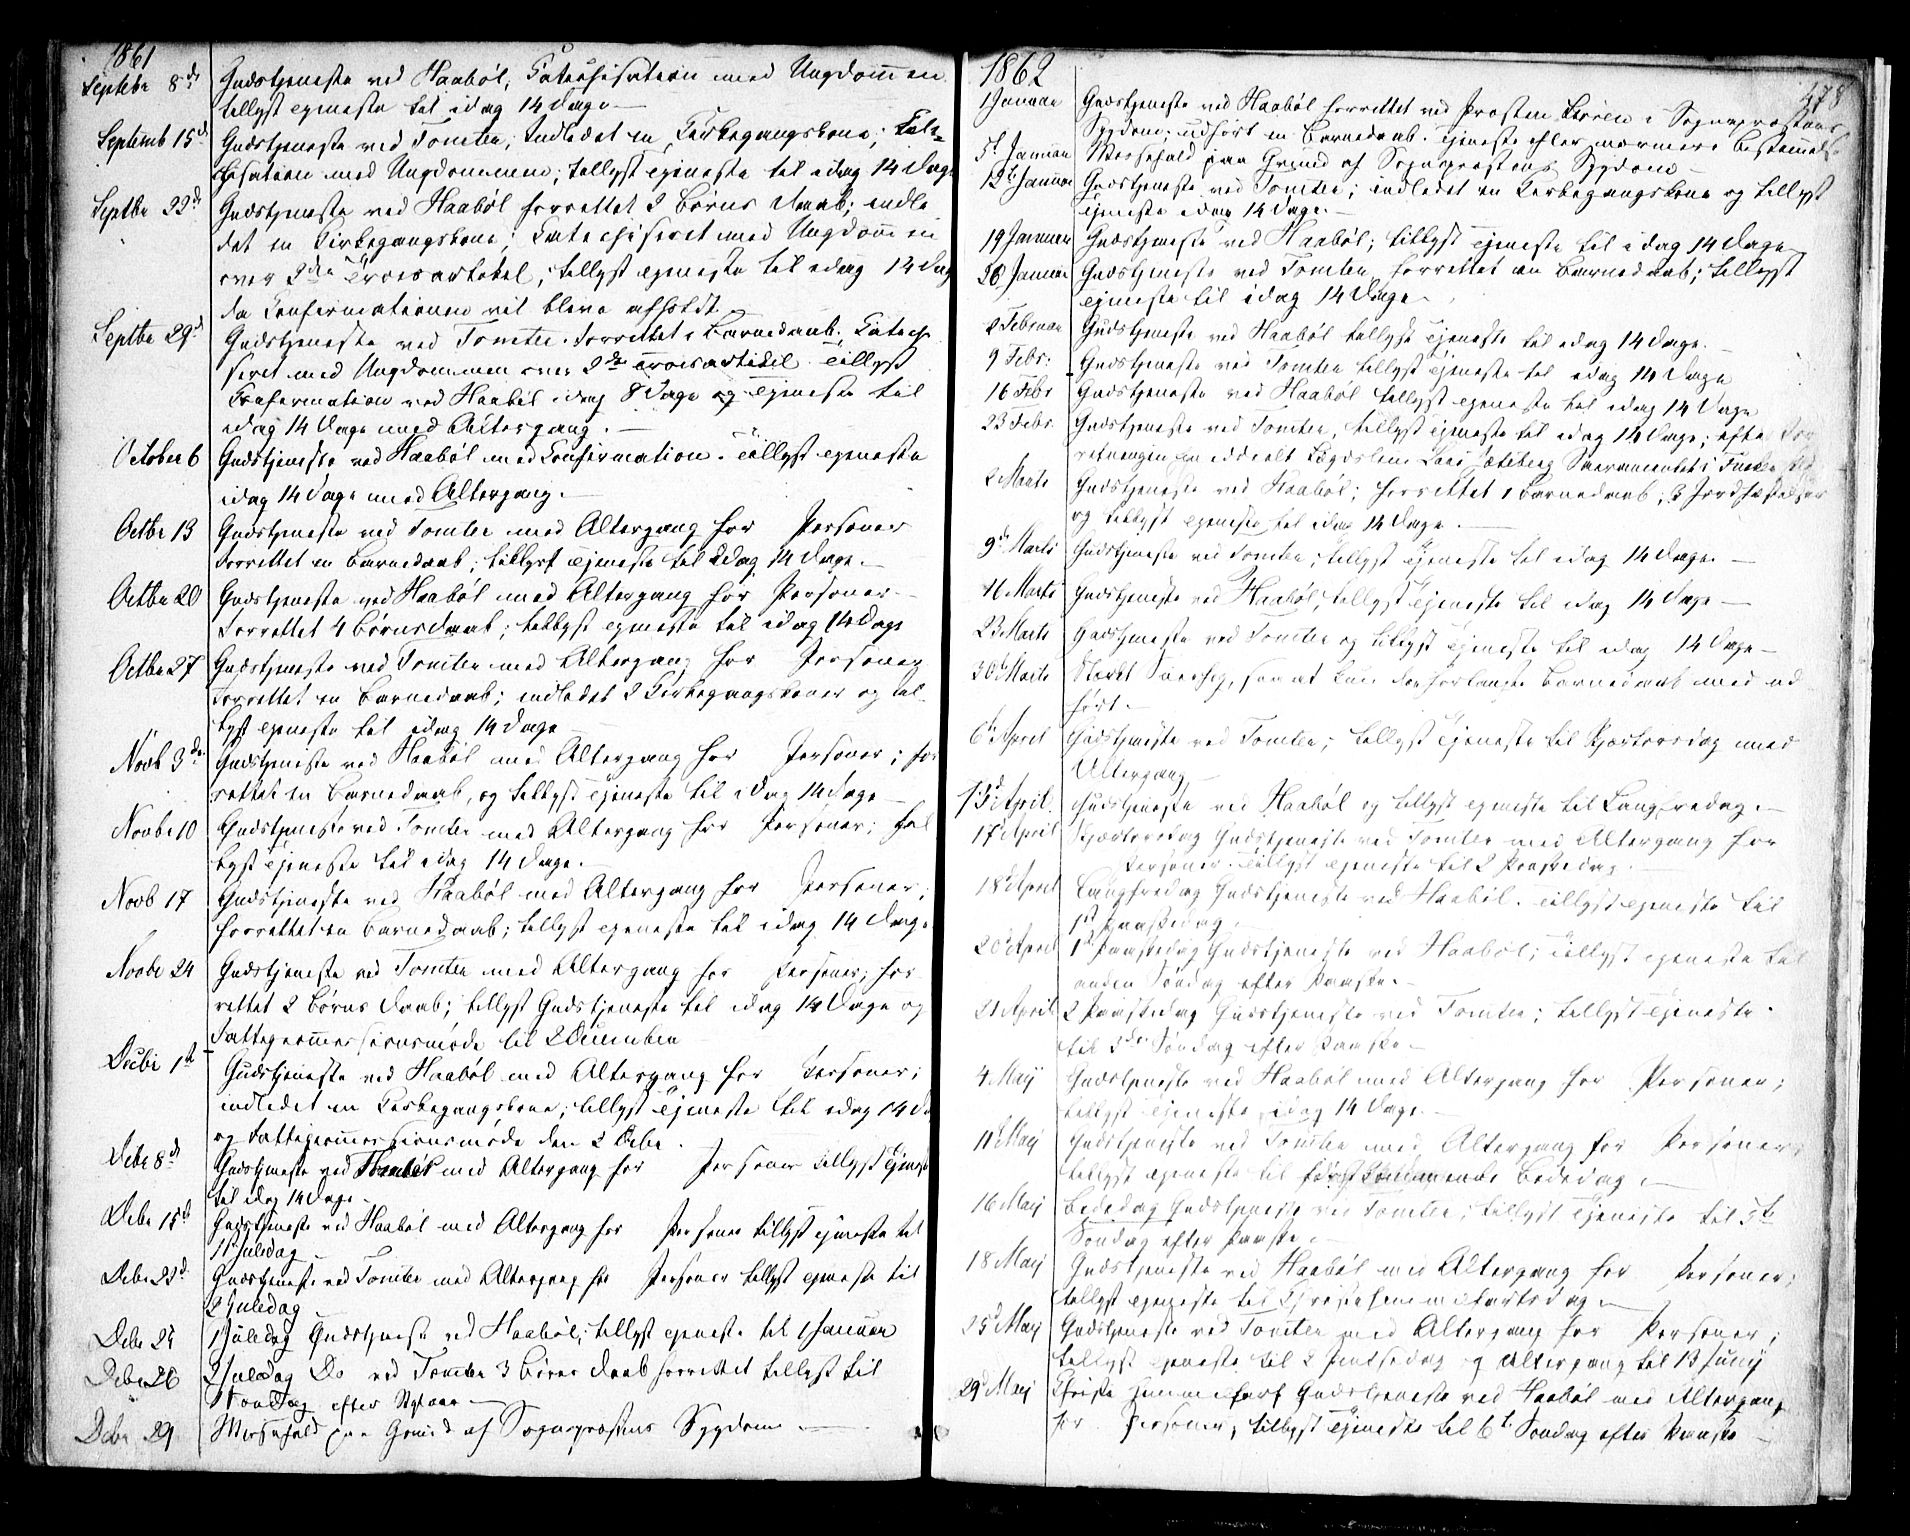 1861
Septebr 8de Gudstjeneste ved Haabøl, Catechisation med Ungdommen
tillyst Tjeneste til idag 14 Dage.
Septemb 15de Gudstjeneste ved Tomter, Indledet en Kirkegangskone; Cate-
chisation med Ungdommen; tillyst Tjeneste til idag 14 Dage
Septbr 22de Gudstjeneste ved Haabøl forrettet 2 Børns Daab; indle
det en Kirkegangskone; Catechiseret med Ungdommen
over 2den Troesartikel, tillyst Tjeneste til idag 14 Dage
da Confirmationen vil blive afholdt.
Septbr 29de Gudstjeneste ved Tomter. Forrettet 1 Barnedaab. Catechi
seret med Ungdommen over 2den Troesartikel. Tillyst
Confirmation ved Haabøl idag 8 Dage og Tjeneste til
idag 14 Dage med Altergang.
October 6 Gudstjeneste ved Haabøl med Confirmation. Tillyst Tjeneste
idag 14 Dage med Altergang.
Octbr 13 Gudstjeneste ved Tomter med Altergang for Personer
Forrettet en Barnedaab; tillyst Tjeneste til idag 14 Dage.
Octbr 20 Gudstjeneste ved Haabøl med Altergang for Personer
Forrettet 4 Børns Daab; tillyst Tjeneste til idag 14 Dage
Octbr 27 Gudstjeneste ved Tomter med Altergang for Personer
Forrettet en Barnedaab; indledet 2 Kirkegangskoner og til-
lyst Tjeneste til idag 14 Dage
Novb 3de Gudstjeneste ved Haabøl med Altergang for Personer; for
rettet en Barnedaab, og tillyst Tjeneste til idag 14 Dage
Novbr 10 Gudstjeneste ved Tomter med Altergang for Personer; til
lyst Tjeneste til idag 14 Dage.
Novb 17 Gudstjeneste ved Haabøl med Altergang for Personer;
forrettet en Barnedaab; tillyst Tjeneste til idag 14 Dage
Novbr 24 Gudstjeneste ved Tomter med Altergang for Personer; for
rettet 2 Børns Daab; tillyst Gudstjeneste til idag 14 Dage og
Fattigcommissionsmøde til 2 December
Decbr 1st Gudstjeneste ved Haabøl med Altergang for Personer;
indledet en Kirkegangskone; tillyst Tjeneste til idag 14 D
og Fattigcommissionsmøde den 2 Decbr.
Decbr 8de Gudstjeneste ved Tomter med Altergang for Personer tillyst Tjeneste
til idag 14 Dage
Decbr 15de Gudstjeneste ved Haabøl med Altergang for Personer tillyst Tjeneste til
1 Juledag
Decbr 22d Gudstjeneste ved Tomter med Altergang for Personer tillyst Tjeneste til
2 Juledag
Decbr 25 1 Juledag Gudstjeneste ved Haabøl; tillyst Tjeneste til 1 Januar
Decbr 26 2 Juledag Do ved Tomter 3 Børns Daab forrettet tillyst til
Søndag efter Nytaar
Decbr 29 Messefald paa Grund af Sognepræstens Sygdom
1862
478
1 Januar Gudstjeneste ved Haabøl forrettet ved Provsten i Sognepræstens
Sygdom; udført en Barnedaab. Tjeneste efter nærmere Bestemmelse
5t Januar Messefald paa Grund af Sognepræstens Sygdom
12te Januar Gudstjeneste ved Tomter; indledet en Kirkegangskone og tillyst
Tjeneste idag 14 Dage.
19 Januar Gudstjeneste ved Haabøl; tillyst Tjeneste til idag 14 Dage
26 Januar Gudstjeneste ved Tomter, forrettet en Barnedaab; tillyst
Tjeneste til idag 14 Dage.
2 Februar Gudstjeneste ved Haabøl tillyst Tjeneste til idag 14 Dage.
9 Febr: Gudstjeneste ved Tomter tillyst Tjeneste til idag 14 Dage
16 Febr Gudstjeneste ved Haabøl tillyst Tjeneste til idag 14 Dage
23 Febr. Gudstjeneste ved Tomter, tillyst Tjeneste til idag 14 Dage; efter For
retningen Lars Sacramentet i
2 Marts Gudstjeneste ved Haabøl; forrettet 1 Barnedaab, 3 Jordfæstelser
og tillyst Tjeneste til idag 14 Dage.
9de Marts Gudstjeneste ved Tomter; tillyst Tjeneste til idag 14 Dage.
16 Marts Gudstjeneste ved Haabøl, tillyst Tjeneste til idag 14 Dage
23 Marts Gudstjeneste ved Tomter og tillyst Tjeneste til idag 14 Dage
30 Marts Stærkt Snefog, saa at kun den forlangte Barnedaab med ud
ført.
6te April Gudstjeneste ved Tomter; tillyst Tjeneste til Skjærtorsdag med
Altergang
13d April. Gudstjeneste ved Haabøl og tillyst Tjeneste til Langfredag.
17 April Skjærtorsdag Gudstjeneste ved Tomter med Altergang for
Personer. Tillyst Tjeneste til 2 Paaskedag.
18 April Langfredag Gudstjeneste ved Haabøl. Tillyst Tjeneste til
1st Paaskedag.
20 April 1st Paaskedag Gudstjeneste ved Haabøl; tillyst Tjeneste til
anden Søndag efter Paaske.
21 April 2 Paaskedag Gudstjeneste ved Tomter; tillyst Tjeneste
til 3de Søndag efter Paaske.
4 Maij Gudstjeneste ved Haabøl med Altergang for Personer;
tillyst Tjeneste idag 14 Dage.
11 Maij Gudstjeneste ved Tomter med Altergang for Personer;
tillyst Tjeneste til førstkommende Bededag.
16 Maij Bededag Gudstjeneste ved Tomter; tillyst Tjeneste til 5te
Søndag efter Paaske.
18 Maij Gudstjeneste ved Haabøl med Altergang for Personer;
tillyst Tjeneste til Christihimmelfartsdag
25d Maij Gudstjeneste ved Tomter med Altergang for Personer;
tillyst Tjeneste til 2 Pintsedag og Altergang til 13 Junij
29d Maij Christi Himmelfart Gudstjeneste ved Haabøl med Altergang
for Personer; tillyst Tjeneste til 6t Søndag efter Paaske